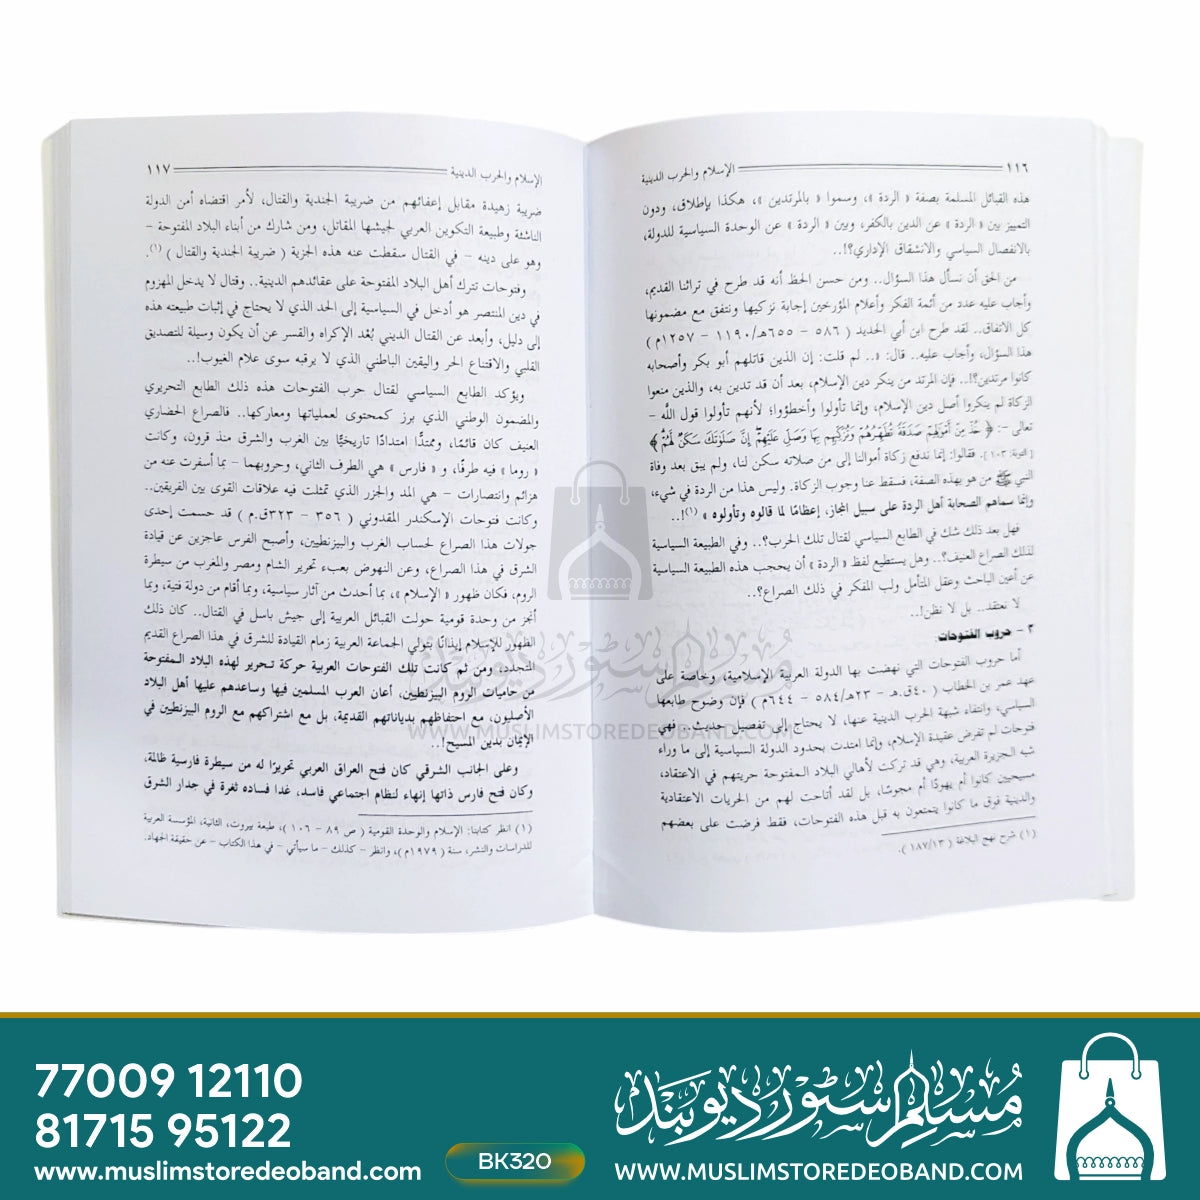 ١١٦ الإسلام والحرب الدينية
هذه القبائل المسلمة بصفة « الردة »، وسموا « بالمرتدين »، هكذا بإطلاق، ودون
التمييز بين « الردة » عن الدين بالكفر، وبين « الردة » عن الوحدة السياسية للدولة،
بالانفصال السياسي والانشقاق الإداري؟!..
من الحق أن نسأل هذا السؤال.. ومن حسن الحظ أنه قد طرح في تراثنا القديم،
وأجاب عليه عدد من أئمة الفكر وأعلام المؤرخين إجابة نزكيها ونتفق مع مضمونها
كل الاتفاق.. لقد طرح ابن أبي الحديد ( ٥٨٦ – ٦٥٥هـ/١١٩٠ – ١٢٥٧م )
هذا السؤال، وأجاب عليه.. قال: «.. لم قلت: إن الذين قاتلهم أبو بكر وأصحابه
كانوا مرتدين؟!.. فإن المرتد من ينكر دين الإسلام، بعد أن قد تدين به، والذين منعوا
الزكاة لم ينكروا أصل دين الإسلام، وإنما تأولوا وأخطؤوا؛ لأنهم تأولوا قول اللَّه –
تعالى –: ﴿ خُذْ مِنْ أَمْوَٰلِهِمْ صَدَقَةً تُطَهِّرُهُمْ وَتُزَكِّيهِم بِهَا وَصَلِّ عَلَيْهِمْ إِنَّ صَلَوٰتَكَ سَكَنٌ لَّهُمْ ﴾
[ التوبة: ١٠٣ ]. فقالوا: إنما ندفع زكاة أموالنا إلى من صلاته سكن لنا، ولم يبق بعد وفاة
النبي ﷺ من هو بهذه الصفة، فسقط عنا وجوب الزكاة. وليس هذا من الردة في شيء،
وإنما سماهم الصحابة أهل الردة على سبيل المجاز، إعظامًا لما قالوه وتأولوه » (١)!..
فهل بعد ذلك شك في الطابع السياسي لقتال تلك الحرب؟.. وفي الطبيعة السياسية
لذلك الصراع العنيف؟.. وهل يستطيع لفظ « الردة » أن يحجب هذه الطبيعة السياسية
عن أعين الباحث وعقل المتأمل ولب المفكر في ذلك الصراع؟..
لا نعتقد.. بل لا نظن!..
٢ – حروب الفتوحات:
أما حروب الفتوحات التي نهضت بها الدولة العربية الإسلامية، وخاصة على
عهد عمر بن الخطاب ( ٤٠ق.هـ – ٢٣هـ/٥٨٤ – ٦٤٤م ) فإن وضوح طابعها
السياسي، وانتفاء شبهة الحرب الدينية عنها، لا يحتاج إلى تفصيل حديث.. فهي
فتوحات لم تفرض عقيدة الإسلام، وإنما امتدت بحدود الدولة السياسية إلى ما وراء
شبه الجزيرة العربية، وهي قد تركت لأهالي البلاد المفتوحة حريتهم في الاعتقاد،
مسيحيين كانوا أم يهودًا أم مجوسًا، بل لقد أتاحت لهم من الحريات الاعتقادية
والدينية فوق ما كانوا يتمتعون به قبل هذه الفتوحات، فقط فرضت على بعضهم
(١) شرح نهج البلاغة ( ١٨٧/١٣ ).
الإسلام والحرب الدينية ١١٧
ضريبة زهيدة مقابل إعفائهم من ضريبة الجندية والقتال، لأمر اقتضاه أمن الدولة
الناشئة وطبيعة التكوين العربي لجيشها المقاتل، ومن شارك من أبناء البلاد المفتوحة –
وهو على دينه – في القتال سقطت عنه هذه الجزية ( ضريبة الجندية والقتال ) (١).
وفتوحات تترك أهل البلاد المفتوحة على عقائدهم الدينية.. وقتال لا يدخل المهزوم
في دين المنتصر هو أدخل في السياسية إلى الحد الذي لا يحتاج في إثبات طبيعته هذه
إلى دليل، وأبعد عن القتال الديني بُعْد الإكراه والقسر عن أن يكون وسيلة للتصديق
القلبي والاقتناع الحر واليقين الباطني الذي لا يرقبه سوى علام الغيوب!..
ويؤكد الطابع السياسي لقتال حرب الفتوحات هذه ذلك الطابع التحريري
والمضمون الوطني الذي برز كمحتوى لعملياتها ومعاركها.. فالصراع الحضاري
العنيف كان قائمًا، وممتدًّا امتدادًا تاريخيًّا بين الغرب والشرق منذ قرون، وكانت
« روما » فيه طرفًا، و « فارس » هي الطرف الثاني، وحروبهما – بما أسفرت عنه من
هزائم وانتصارات – هي المد والجزر الذي تمثلت فيه علاقات القوى بين الفريقين..
وكانت فتوحات الإسكندر المقدوني ( ٣٥٦ – ٣٢٣ق.م ) قد حسمت إحدى
جولات هذا الصراع لحساب الغرب والبيزنطيين، وأصبح الفرس عاجزين عن قيادة
الشرق في هذا الصراع، وعن النهوض بعبء تحرير الشام ومصر والمغرب من سيطرة
الروم، فكان ظهور « الإسلام »، بما أحدث من آثار سياسية، وبما أقام من دولة فتية، وبما
أنجز من وحدة قومية حولت القبائل العربية إلى جيش باسل في القتال.. كان ذلك
الظهور للإسلام إيذانًا بتولي الجماعة العربية زمام القيادة للشرق في هذا الصراع القديم
المتجدد، ومن ثم كانت تلك الفتوحات العربية حركة تحرير لهذه البلاد المفتوحة
من حاميات الروم البيزنطيين، أعان العرب المسلمين فيها وساعدهم عليها أهل البلاد
الأصليون، مع احتفاظهم بدياناتهم القديمة، بل مع اشتراكهم مع الروم البيزنطيين في
الإيمان بدين المسيح!..
وعلى الجانب الشرقي كان فتح العراق العربي تحريرًا له من سيطرة فارسية ظالمة،
وكان فتح فارس ذاتها إنهاء لنظام اجتماعي فاسد، غدا فساده ثغرة في جدار الشرق
(١) انظر كتابنا: الإسلام والوحدة القومية ( ص ٨٩ – ١٠٦ )، طبعة بيروت، الثانية، المؤسسة العربية
للدراسات والنشر، سنة ( ١٩٧٩م )، وانظر – كذلك – ما سيأتي – في هذا الكتاب – عن حقيقة الجهاد.
مسلم سٹور دیوبند
WWW.MUSLIMSTOREDEOBAND.COM
77009 12110
81715 95122
www.muslimstoredeoband.com
BK320
مسلم سٹور دیوبند
WWW.MUSLIMSTOREDEOBAND.COM